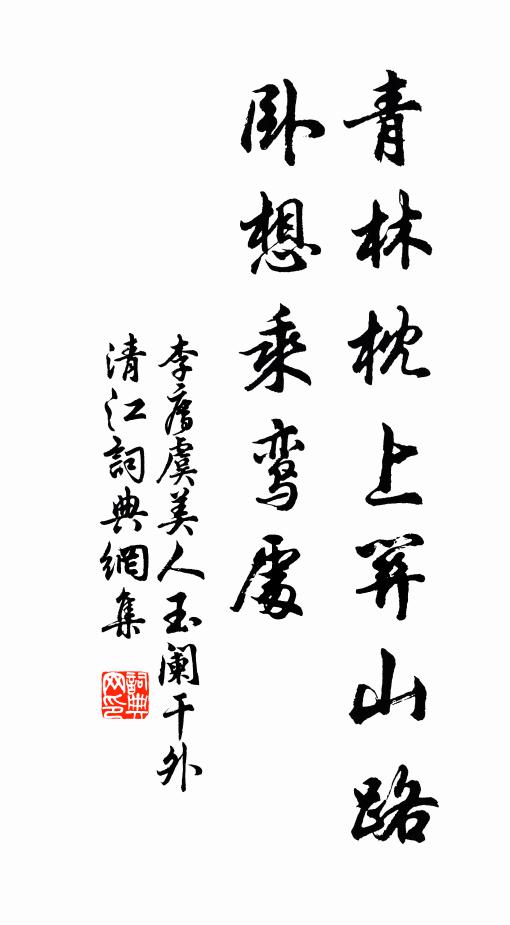 青林枕上關山路
卧想乘鸾處
李廌虞美人玉阑干外
清江詞典網集
詞典网印